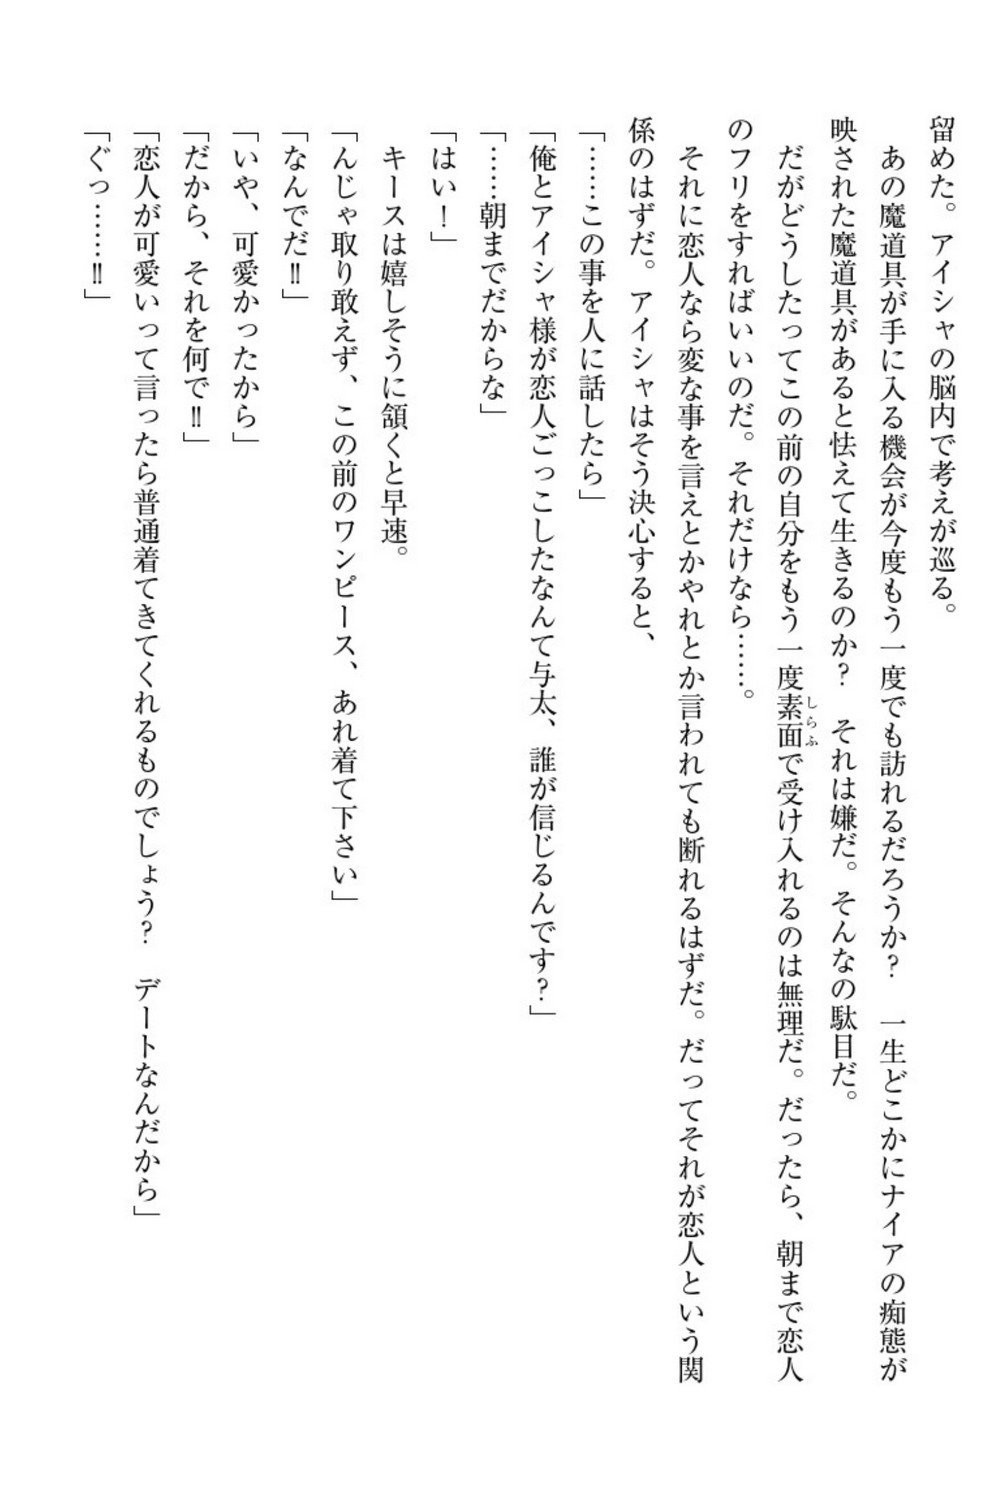 留めた。アイシャの脳内で考えが巡る。
　あの魔道具が手に入る機会が今度もう一度でも訪れるだろうか？　一生どこかにナイアの痴態が
映された魔道具があると怯えて生きるのか？　それは嫌だ。そんなの駄目だ。
　だがどうしたってこの前の自分をもう一度素面しらふで受け入れるのは無理だ。だったら、朝まで恋人
のフリをすればいいのだ。それだけなら……。
　それに恋人なら変な事を言えとかやれとか言われても断れるはずだ。だってそれが恋人という関
係のはずだ。アイシャはそう決心すると、
「……この事を人に話したら」
「俺とアイシャ様が恋人ごっこしたなんて与太、誰が信じるんです？」
「……朝までだからな」
「はい！」
　キースは嬉しそうに頷くと早速。
「んじゃ取り敢えず、この前のワンピース、あれ着て下さい」
「なんでだ‼」
「いや、可愛かったから」
「だから、それを何で‼」
「恋人が可愛いって言ったら普通着てきてくれるものでしょう？　デートなんだから」
「ぐっ……‼」